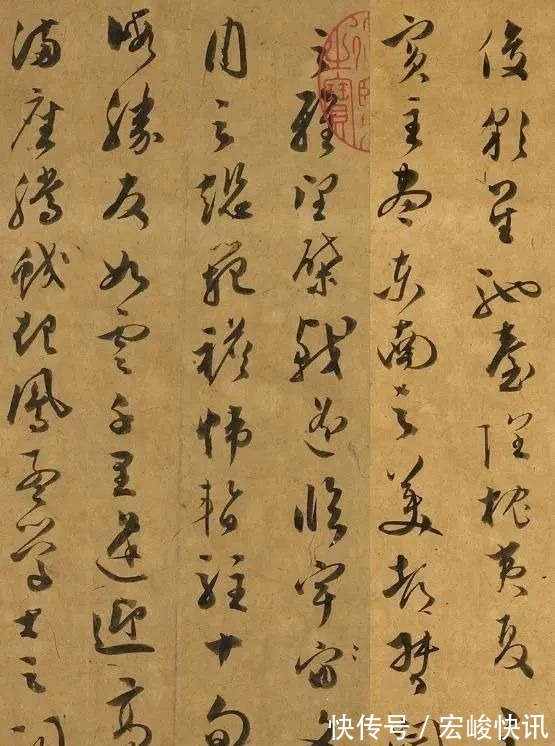 俊彩星馳臺隍枕夷夏
賓主盡東南之美都督
之雅望棨戟遥臨宇宙文
州之懿範襜帷暫駐十旬
暇勝友如雲千里逢迎高
滿座騰蛟起鳳孟學士之詞
快传号/宏峻快讯